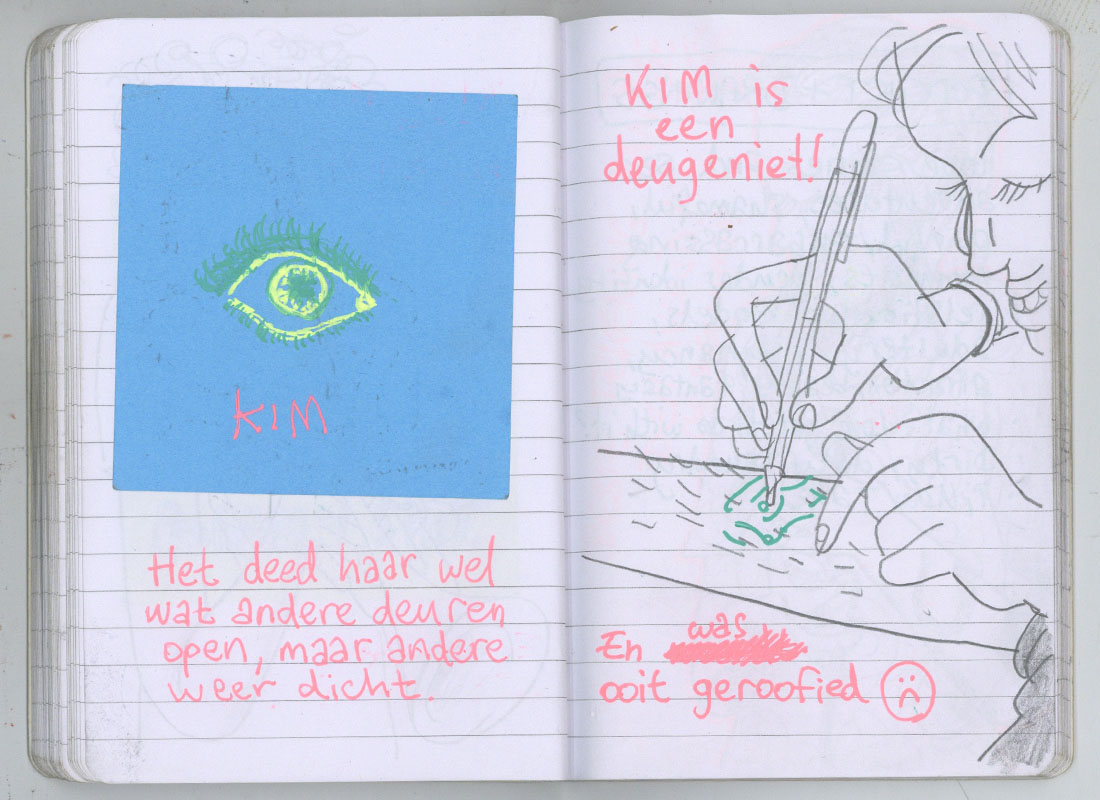 KIM
Het deed haar wel
wat andere deuren
open, maar andere
weer dicht.
KIM is
een
deugeniet!
En was
ooit geroofied